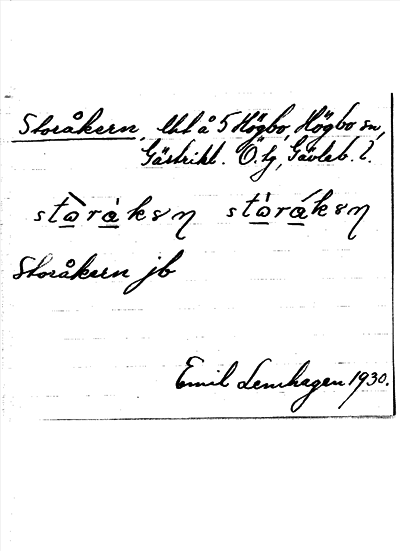 Storåkern, lht å 5 Högbo, Högbo sn,
Gästrikl. Ö. tg, Gävleb. l.
stòrákən stòrákən
Storåkern jb
Emil Lenhagen 1930.